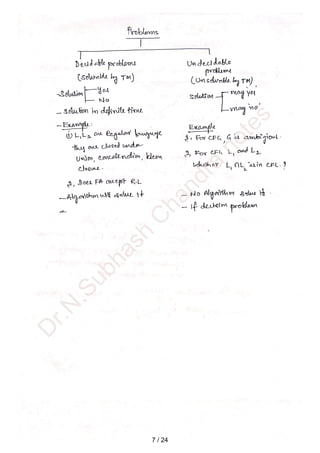 Problems
Decidable problems
(Solvable by TM)
Solution yes
No
- Solution in definite time
- Example:
1) L1, L2 are Regular language
they are closed under
Union, concatenation, kleen
closure.
2, Does FA accept R.L
- Algorithm will solve it
Undecidable
problems
(Unsolvable by TM)
Solution may yes
may 'no'.
Example
1. For CFG, G is ambiguous.
2, For CFL L1 and L2
whether L1 ∩ L2 is in CFL.?
- No Algorithm solve it.
- If decision problem
Dr.N.Subhash Chandra Notes
7 / 24